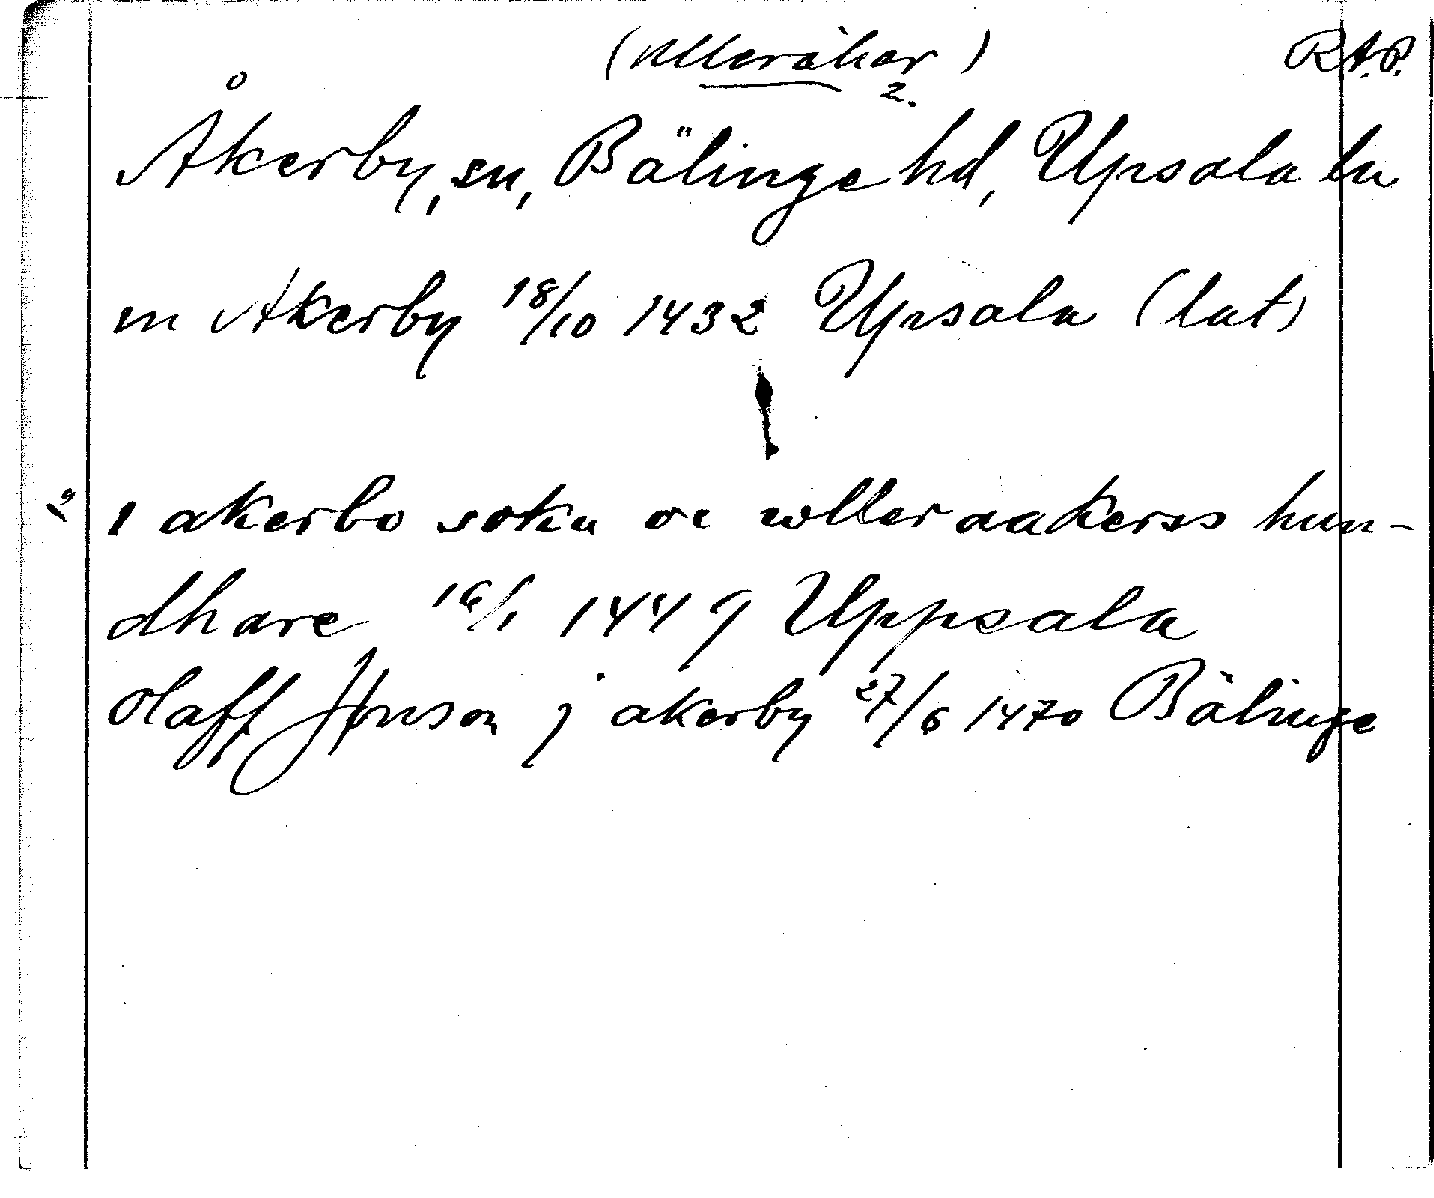 (Ulleråker) R.A.P.
2.
Åkerby, sn, Bälinge hd, Upsala ln
in Akerby 18/10 1432 Upsala (lat)
1º I akerbo sokn oc wlleraakerss hun-
dhare 16/1 1449 Uppsala
olaff Jönson j akerby 27/6 1470 Bälinge